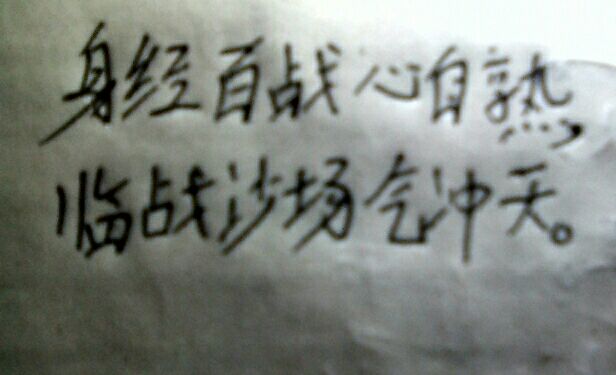 身经百战心自熟,
临战沙场气冲天。